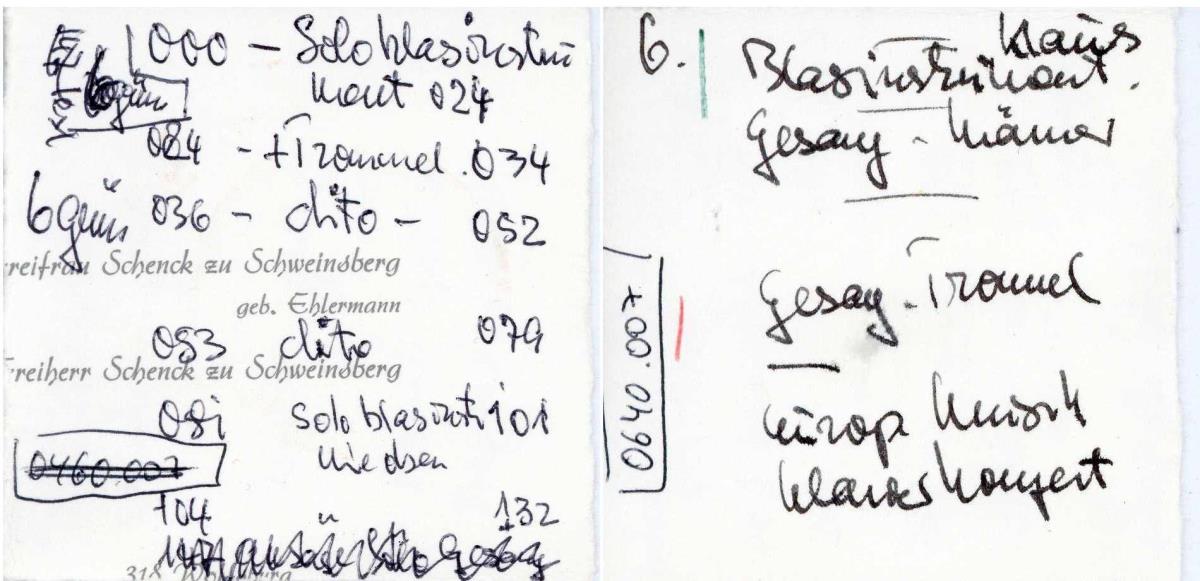 000 - Soloblasinstru
ment 024
grün
024 - + Trommel . 034
6 grün 036 - dito - 052
reifrau Schenck zu Schweinsberg
geb. Ehlermann
053 dito 079
reiherr Schenck zu Schweinsberg
081 Soloblasinst 101
0460.007
104 132
6. Klaus
Blasinstrument.
Gesang - Männer
Gesang - Trommel
0640.007
europ. Musik
Klavierkonzert